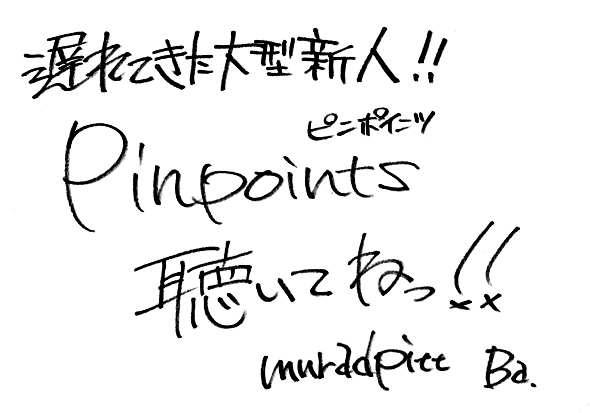 遅れてきた大型新人!!
ピンポインツ
Pinpoints
聴いてねっ!!
muradpitt Ba.